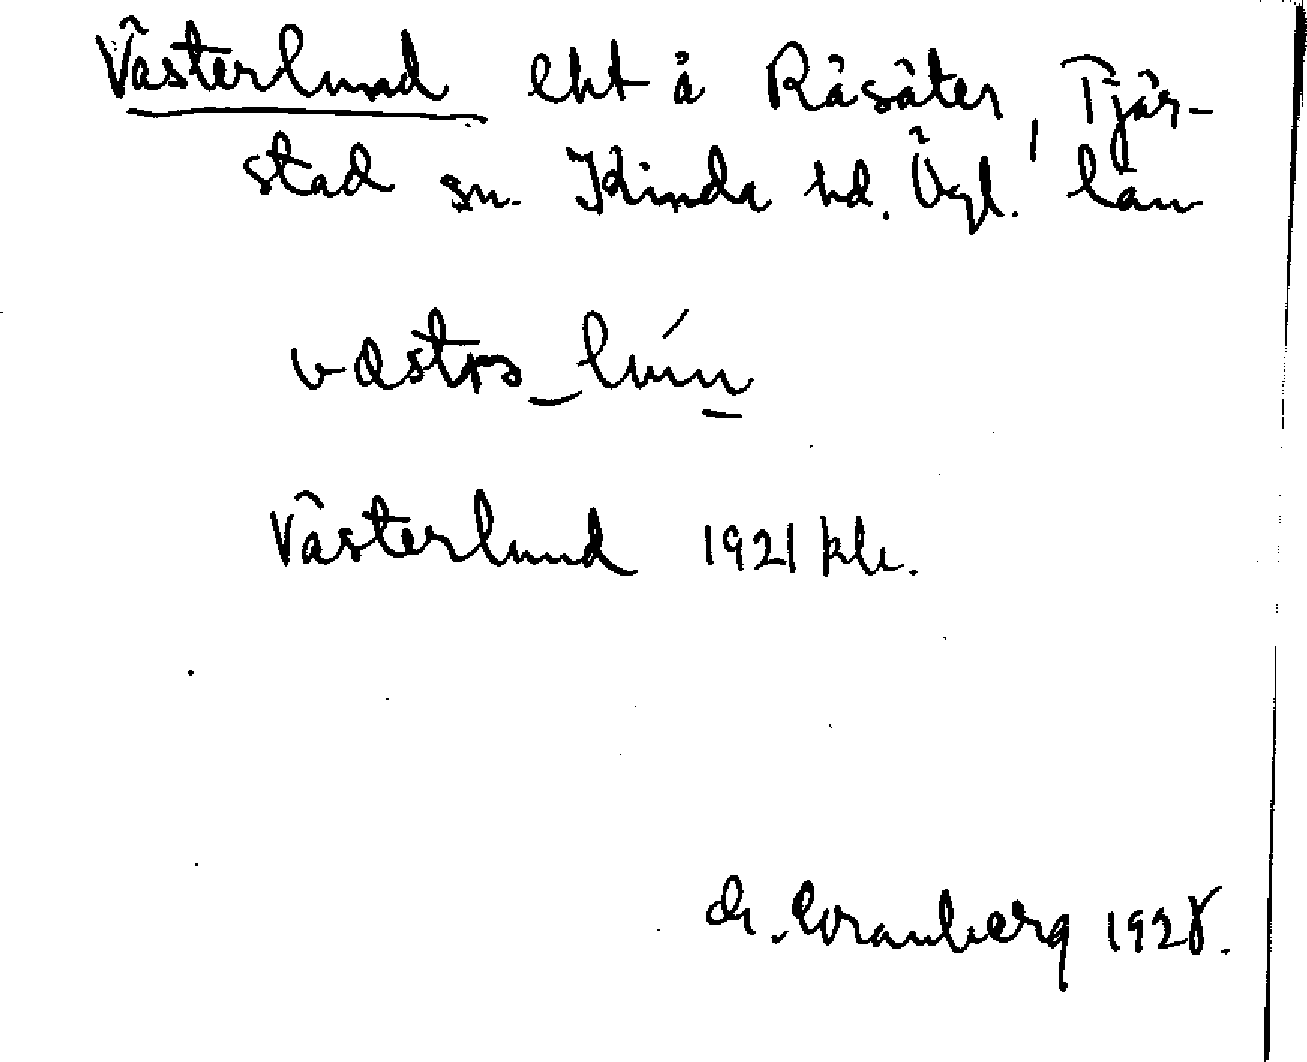 Västerlund lht å Råsäter, Tjär-
stad sn. Kinda hd. Ögl. län
västrslún
Västerlund 1921 kbr.
Granberg 1928.